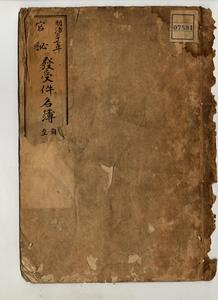 明治十五年
官秘發受件名簿
自
至
07591